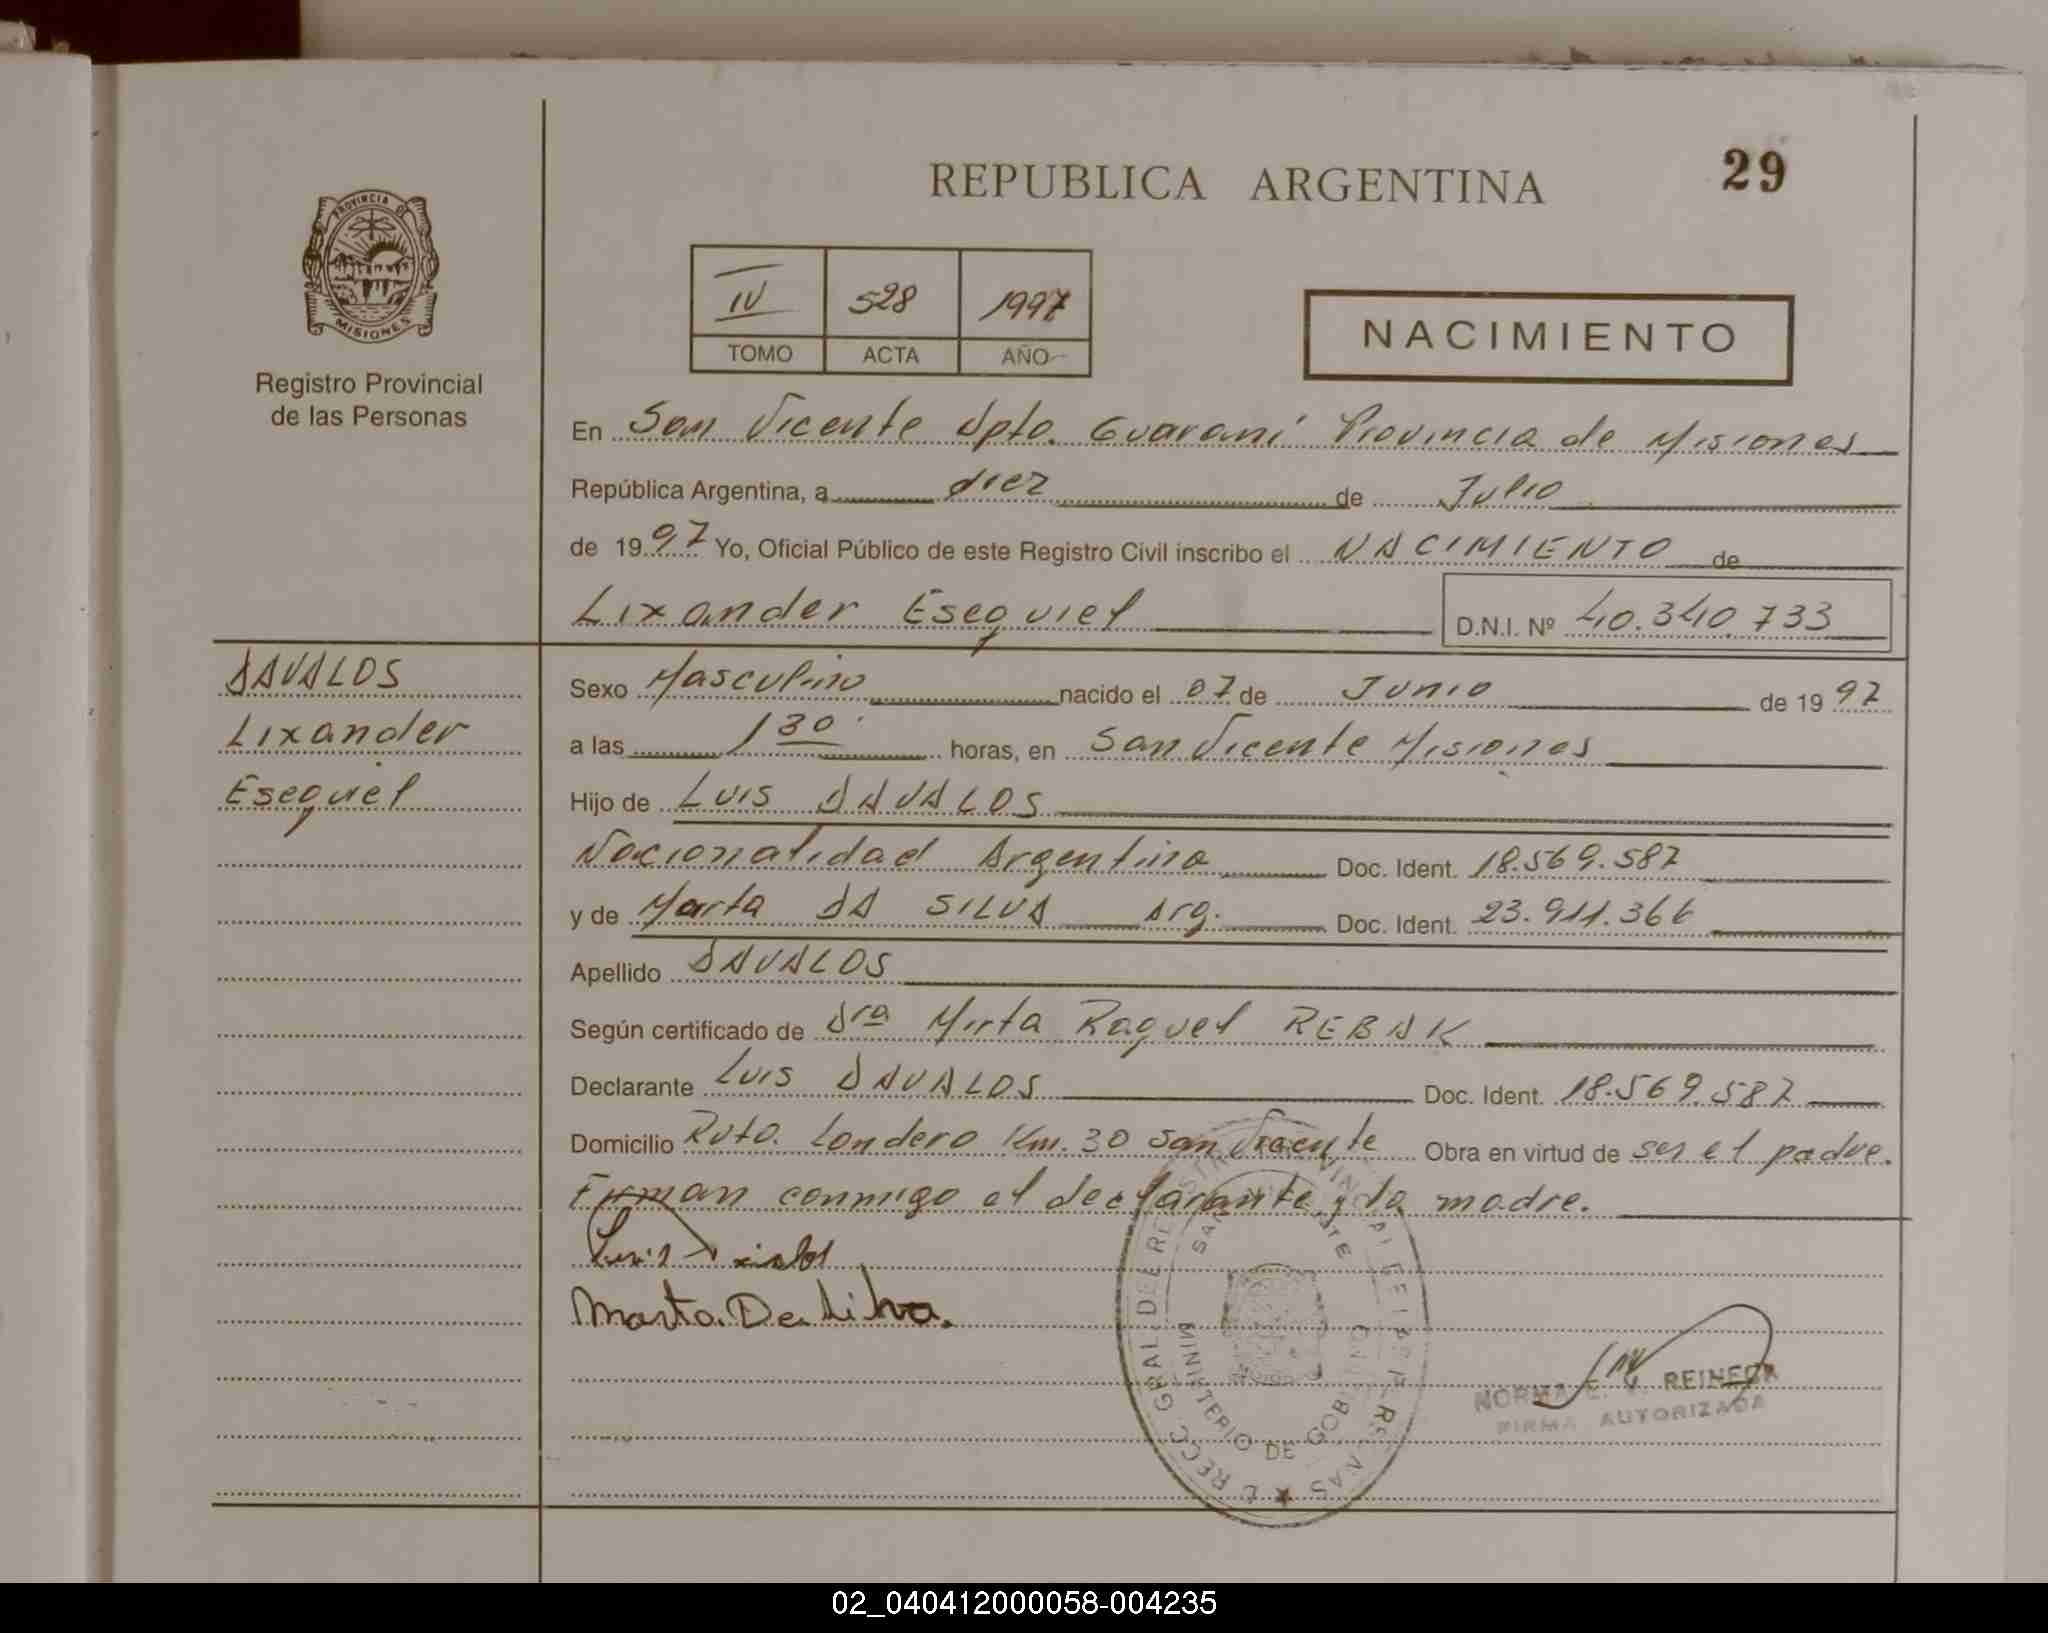 REPUBLICA ARGENTINA
29
PROVINCIA DE
MISIONES
Registro Provincial
de las Personas
IV 528 1997
TOMO ACTA AÑO
NACIMIENTO
En San Vicente Dpto. Guaraní Provincia de Misiones
República Argentina, a diez de Julio
de 1997 Yo, Oficial Público de este Registro Civil inscribo el NACIMIENTO de
Lixander Esequiel D.N.I. Nº 40.340.733
DAVALOS
Lixander
Esequiel
Sexo Masculino nacido el 07 de Junio de 1997
a las 1 30 horas, en San Vicente Misiones
Hijo de Luis DAVALOS
Nacionalidad Argentina Doc. Ident. 18.569.587
y de Marta DA SILVA Arg. Doc. Ident. 23.911.366
Apellido DAVALOS
Según certificado de Dra Mirta Raquel REBAK
Declarante Luis DAVALOS Doc. Ident. 18.569.587
Domicilio Ruta. Londero Km. 30 San Vicente Obra en virtud de ser el padre.
Firman conmigo el declarante y la madre.
Luis
Marta Da Silva.
MINISTERIO DE GOBIERNO
NORMA REINECK
FIRMA AUTORIZADA
02_040412000058-004235